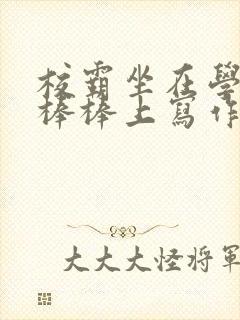 校霸坐在學
棒棒上寫作
大大大怪將軍